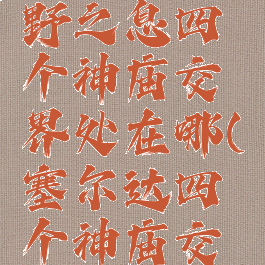 野之息四
个神庙交
界处在哪(
塞尔达四
个神庙交